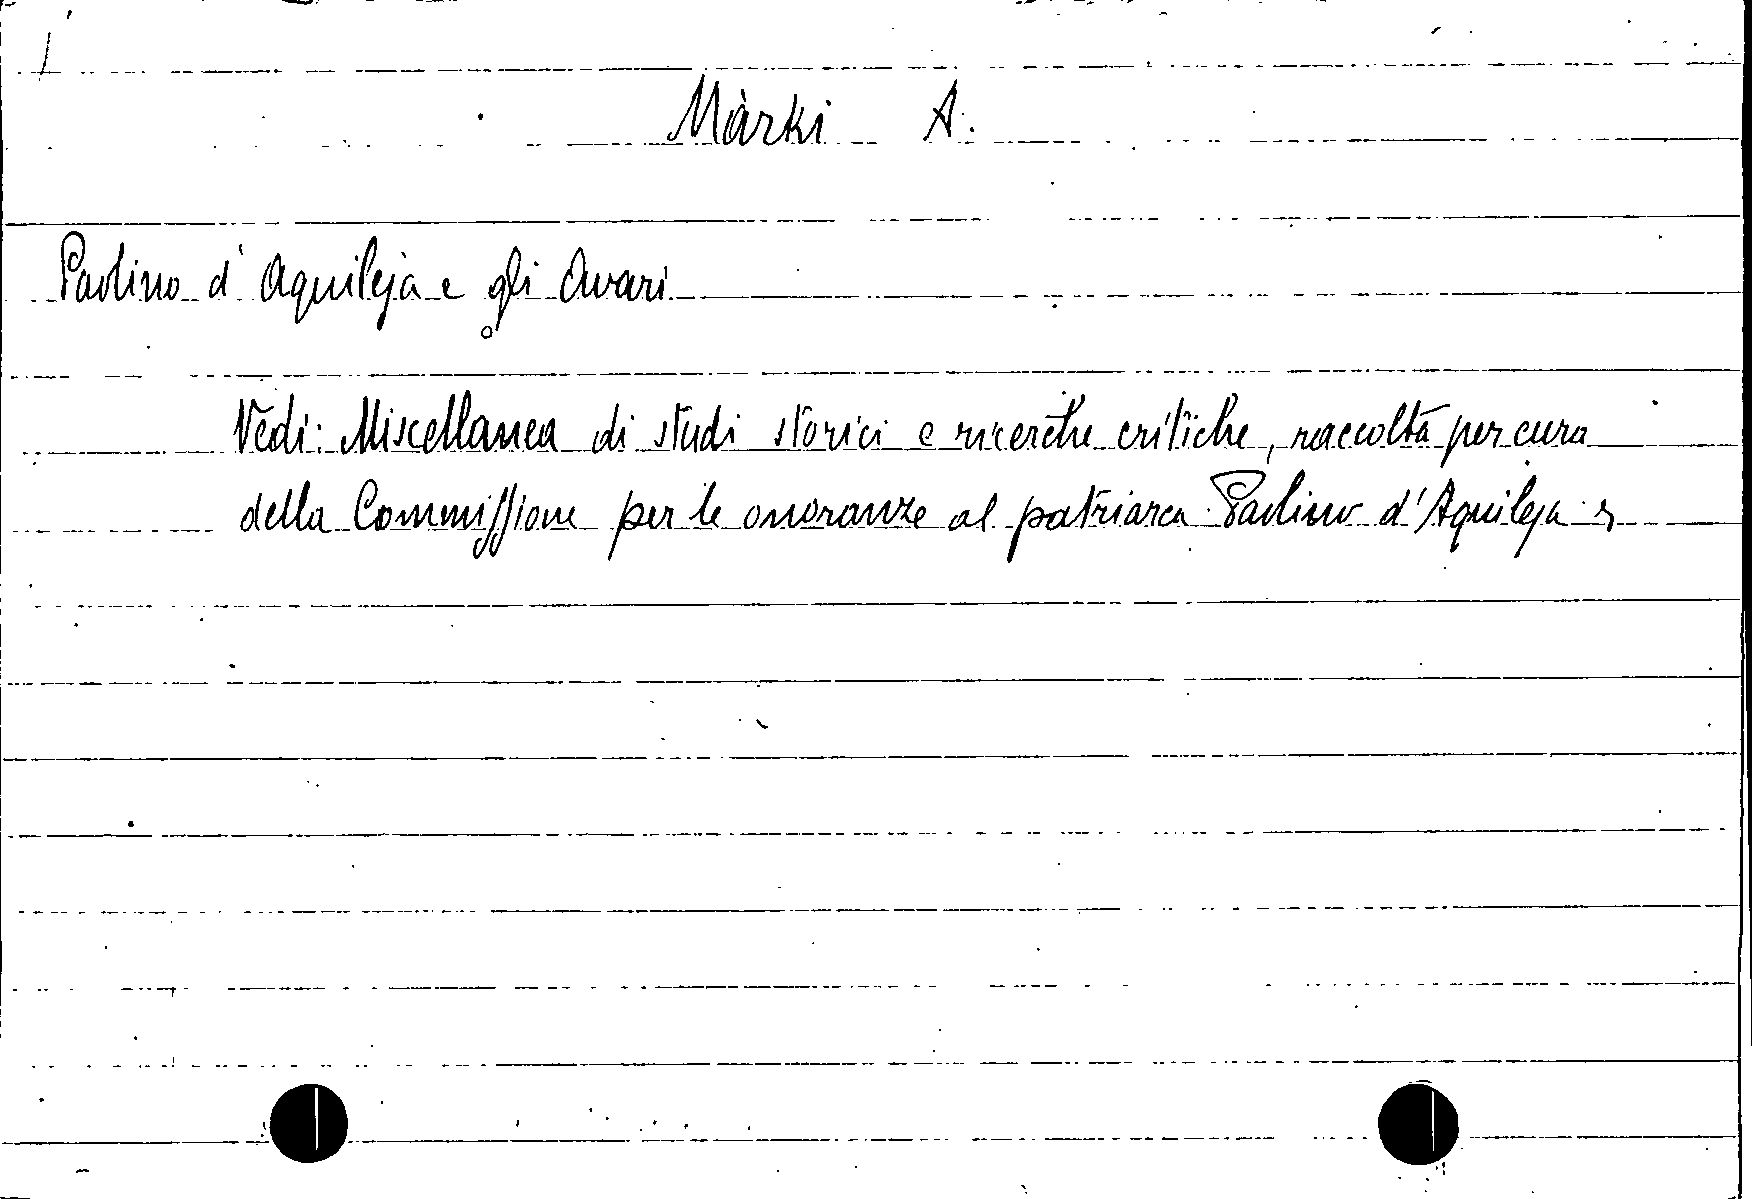 Màrki A.
Paolino d'Aquileja e gli Avari
Vedi: Miscellanea di studi storici e ricerche critiche, raccolta per cura
della Commissione per le onoranze al patriarca Paolino d'Aquileja